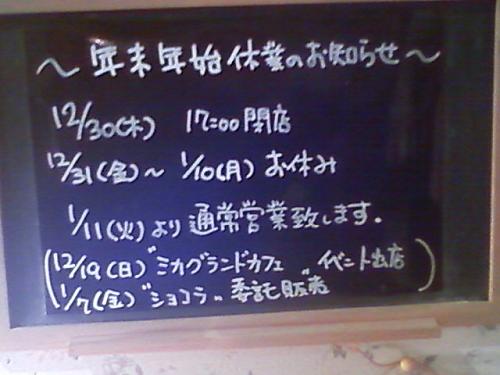 ～年末年始休業のお知らせ～
12/30(木) 17:00閉店
12/31(金)～1/10(月)お休み
1/11(火)より通常営業致します。
(12/19(日)"ミカグランドカフェ"イベント出店
1/7(金)"ショコラ"委託販売)